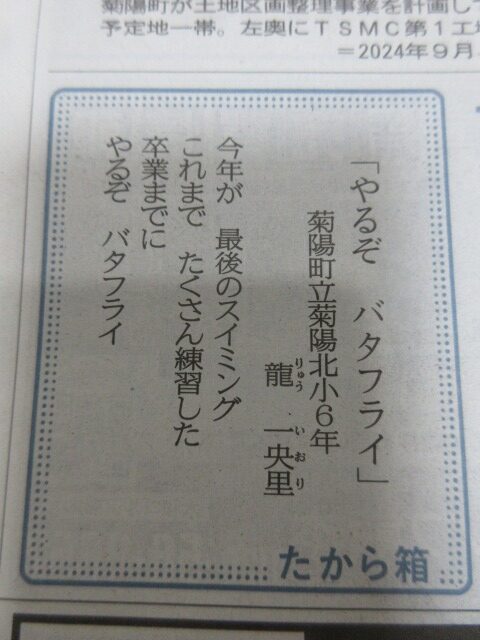 菊陽町が土地区画整理事業を計画し
予定地一帯。左奥にＴＳＭＣ第１工
＝2024年９月
「やるぞ　バタフライ」
菊陽町立菊陽北小６年
龍　一央里
りゅう　いおり
今年が　最後のスイミング
これまで　たくさん練習した
卒業までに
やるぞ　バタフライ
たから箱